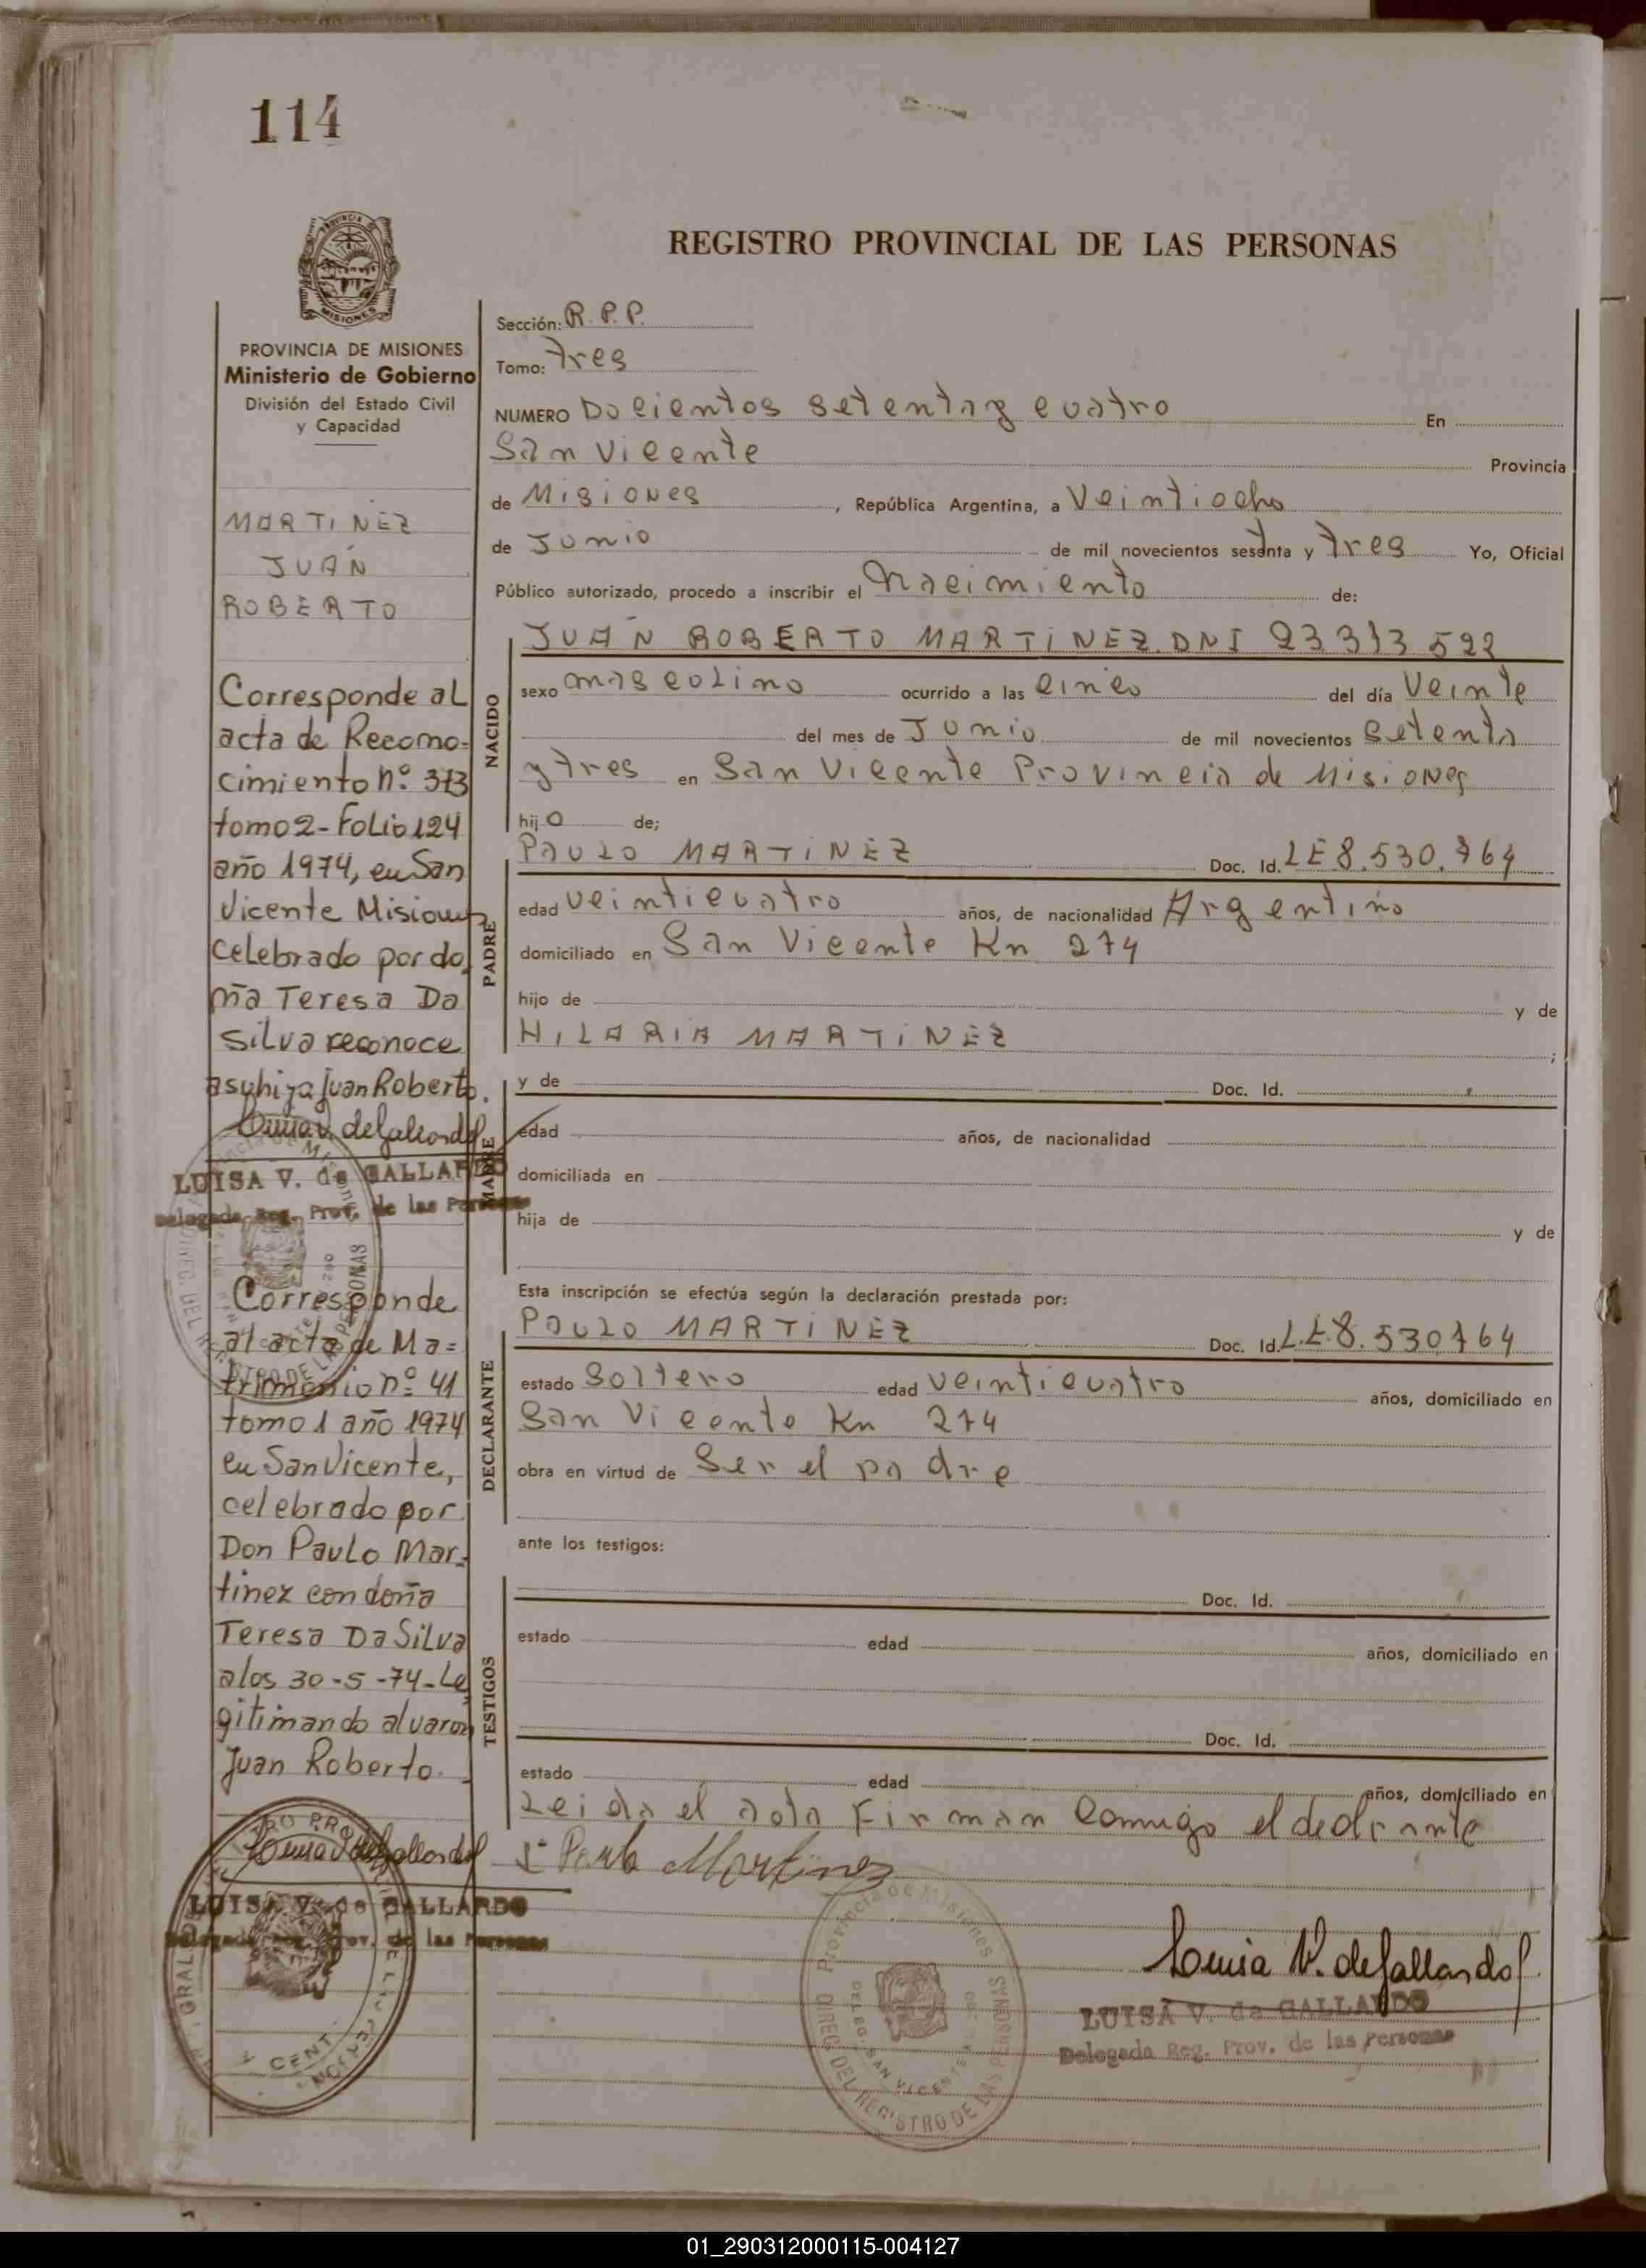 114
REGISTRO PROVINCIAL DE LAS PERSONAS
PROVINCIA DE MISIONES
Ministerio de Gobierno
División del Estado Civil
y Capacidad
MARTINEZ
JUAN
ROBERTO
Corresponde al
acta de Recono=
cimiento nº 373
tomo 2 - Folio 124
año 1974, en San
Vicente Misiones
celebrado por do
ña Teresa Da
Silva reconoce
a su hijo Juan Roberto.
Luisa V. de Gallardo
LUISA V. de GALLARDO
Delegada Reg. Prov. de las Personas
Corresponde
al acta de Ma=
trimonio nº 41
tomo 1 año 1974
en San Vicente,
celebrado por
Don Paulo Mar=
tinez con doña
Teresa Da Silva
a los 30-5-74-Le
gitimando al varon
Juan Roberto.
Luisa V. de Gallardo
LUISA V. de GALLARDO
Delegada Reg. Prov. de las Personas
Sección: R.P.P.
Tomo: tres
NUMERO Docientos setenta y cuatro En
San Vicente Provincia
de Misiones, República Argentina, a Veintiocho
de Junio de mil novecientos sesenta y tres Yo, Oficial
Público autorizado, procedo a inscribir el Nacimiento de:
NACIDO
JUAN ROBERTO MARTINEZ. DNI 23 313 522
sexo masculino ocurrido a las cinco del día Veinte
del mes de Junio de mil novecientos setenta
y tres en San Vicente Provincia de Misiones
hijo de;
PADRE
PAULO MARTINEZ Doc. Id. LE 8.530.764
edad veinticuatro años, de nacionalidad Argentino
domiciliado en San Vicente Km 274
hijo de y de
HILARIA MARTINEZ ;
MADRE
y de Doc. Id.
edad años, de nacionalidad
domiciliada en
hija de y de
Esta inscripción se efectúa según la declaración prestada por:
DECLARANTE
PAULO MARTINEZ Doc. Id. L.E 8.530764
estado soltero edad veinticuatro años, domiciliado en
San Vicente Km 274
obra en virtud de Ser el padre
ante los testigos:
TESTIGOS
Doc. Id.
estado edad años, domiciliado en
Doc. Id.
estado edad años, domiciliado en
Leida el acta Firman Conmigo el declarante
Paulo Martinez
Provincia de Misiones
DIREC. DEL REGISTRO DE LAS PERSONAS
Luisa V. de Gallardo
LUISA V. de GALLARDO
Delegada Reg. Prov. de las Personas
01_290312000115-004127